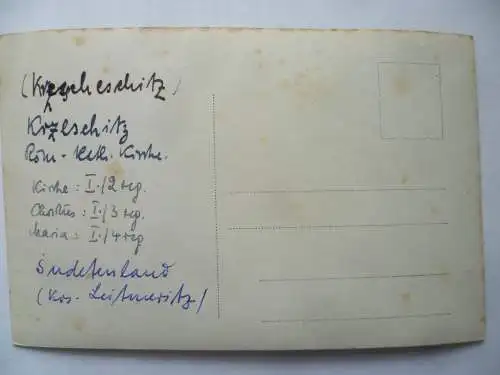 (Krzescheschitz)
Krzeschitz
Röm.-Kath. Kirche.
Kirche: I./2 reg.
Christus: I./3 reg.
Maria: I./4 reg
Sudetenland
(Krs. Leitmeritz)